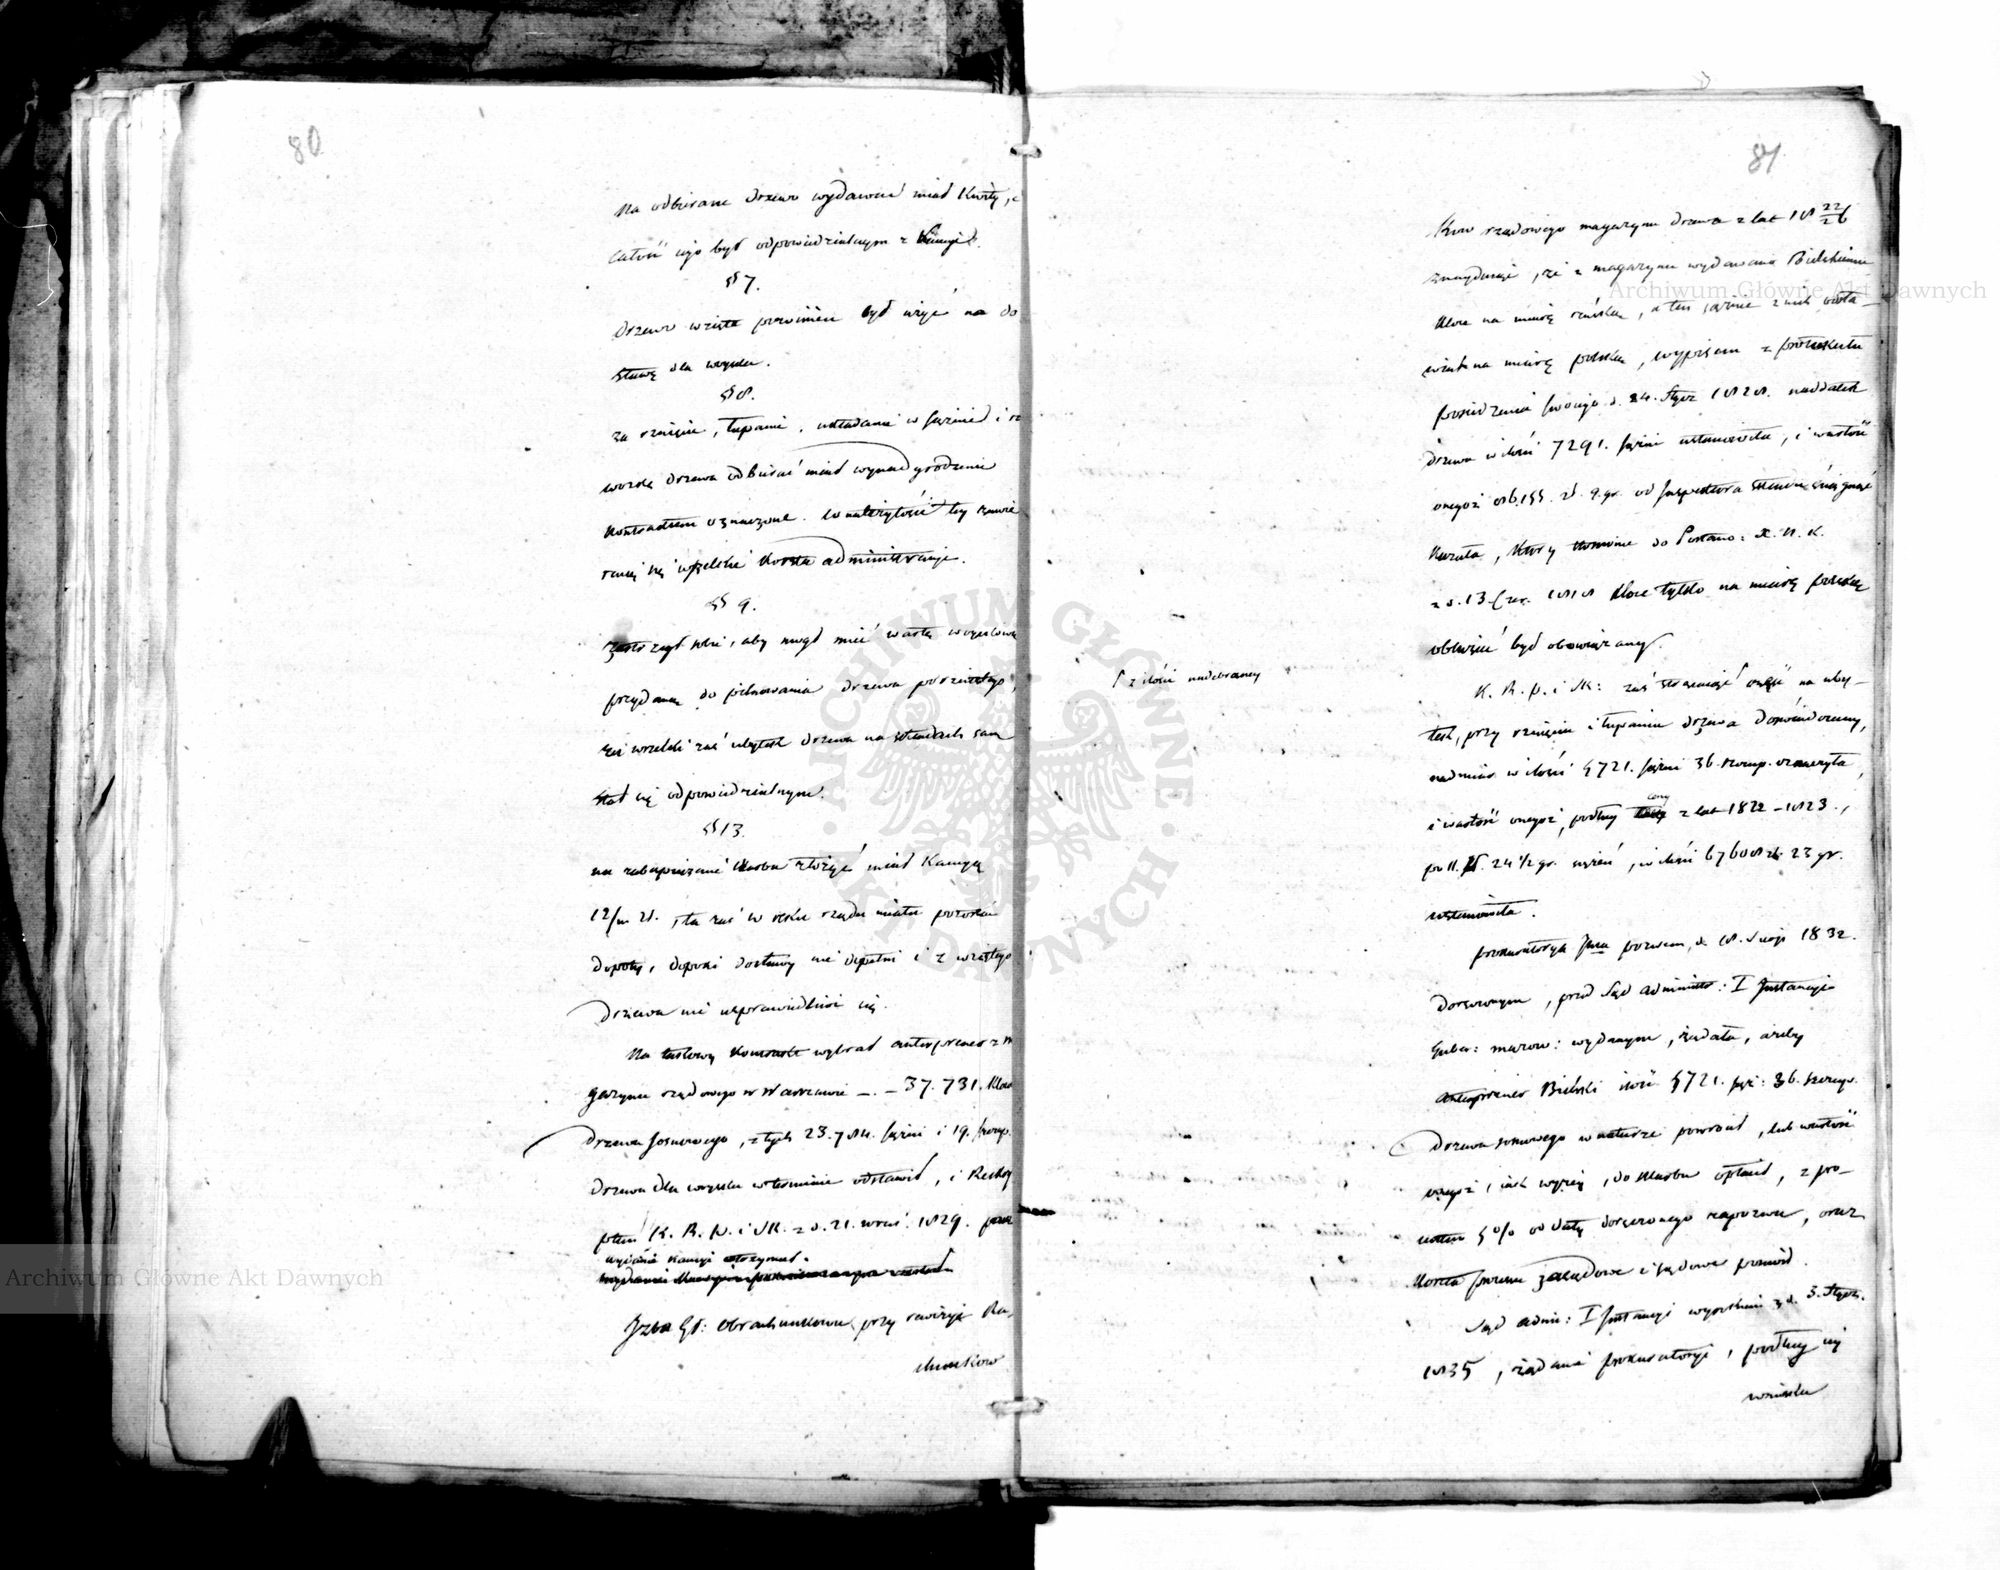 80
na odbierane drzewo wydawać miał Kwity, i
całość iego był odpowiedzialnym z Kaucyi.
§ 7.
drzewo wzięte powinien był użyć na do
stawę dla woyska.
§ 8.
za rznięcie, łupanie, układanie w sążnie i
wozkę drzewa odbierać miał wynadgrodzenie
Kontraktem oznaczone. w należytość tey zawie
rają się wszelkie koszta administracyi.
§ 9.
Zastrzegł sobie, aby mógł mieć wartę woyskową
przydaną do pilnowania drzewa porzniętego,
za wszelki zaś ubytek drzewa na składach sam
stał się odpowiedzialnym.
§ 13.
na zabespieczenie skarbu złożyć miał Kaucyą
12/m zł., ta zaś w ręku rządu miała pozostać
dopóty, dopóki dostawy nie dopełni i z wziętego
drzewa nie usprawiedliwi się.
Na takowy Kontrakt wybrał anterprener z ma
gazynu rządowego w Warszawie – . – 37.731. Kloc
drzewa sosnowego, z tych 23.784. sążni i 19. szczap.
drzewa dla woyska w terminie odstawił, i Reskry
ptem K. R. P. i SK. z d. 21. wrześ. 1829. przez
wydanie Kaucyi otrzymał.
Izba Gł: Obrachunkowa przy rewizyi Ra-
chunkow
81
Kow rządowego magazynu drzewa z lat 18 22/26
znayduiąc, że z magazynu wydawano Bielskiemu
kloce na miarę reńską, a ten sążnie z nich usta-
wiał na miarę polską, wypisem z protokułu
posiedzenia swoiego d. 24. Stycz 1828. naddatek
drzewa w ilości 7291. sążni ustanowiła, i wartość
onegoż 86,155. zł. 9. gr. od Inspektora składu ściągnąć
kazała, który stosownie do Postano: X. N. K.
z d. 13. Czer. 1818 kloce tylko na miarę polską
obliczać był obowiązany.
[ z ilości nadebraney
K. R. P. i SK: zaś strąciwszy część na uby-
tek, przy rznięciu i łupaniu drzewa doświadczony,
nadmiar w ilości 5721. sążni 36. szczap. oznaczyła,
i wartość onegoż, podług ceny z lat 1822 – 1823.,
po 11. zł. 24 1/2 gr. sążeń, w ilości 67608 zł. 23 gr.
ustanowiła.
Prokuratorya Jna pozwem, d. 18. 1832.
doręczonym, przed Sąd administr: I Instancyi
Guber: mazow: wydanym, żądała, ażeby
anterprener Bielski ilość 5721. sąż: 36. szczap.
drzewa sosnowego w naturze powrócił, lub wartość
onegoż, iak wyżey, do skarbu opłacił, z pro-
centem 5% od daty doręczonego zapozwu, oraz
koszta prawne zasądowe i sądowe powrócił.
Sąd admi: I Instancyi wyrokiem z d. 3. Stycz.
1835, żądanie prokuratoryi, podług iey
wniosku
Archiwum Główne Akt Dawnych
Archiwum Główne Akt Dawnych
ARCHIWUM GŁÓWNE AKT DAWNYCH